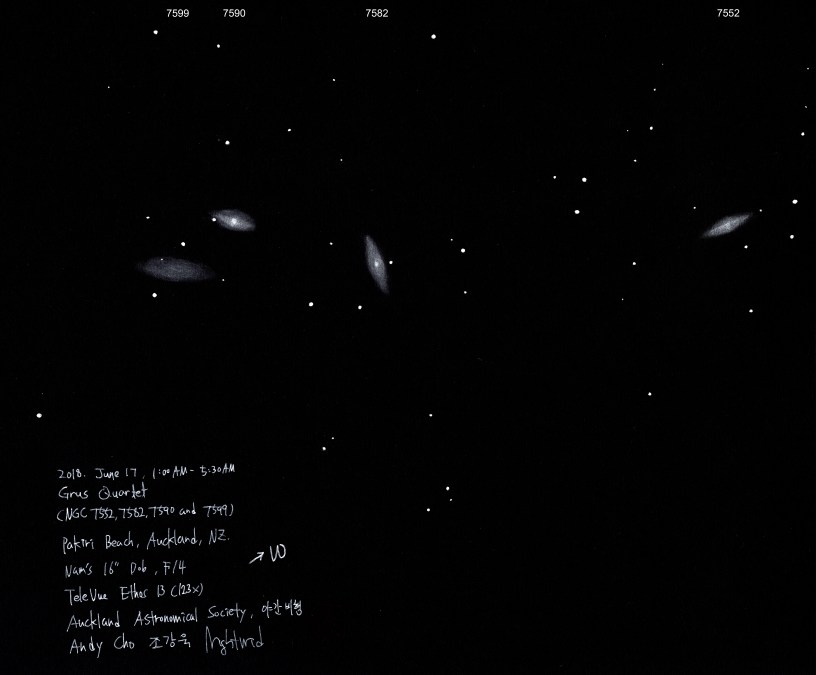 7599 7590 7582 7552
2018. June 17, 1:00 AM - 5:30 AM
Grus Quartet
(NGC 7552, 7582, 7590 and 7599)
Pakiri Beach, Auckland, NZ.
→ W
Nam's 16" Dob, F/4
TeleVue Ethos 13 (123x)
Auckland Astronomical Society, 야간비행
Andy Cho 조강욱 Nightwid